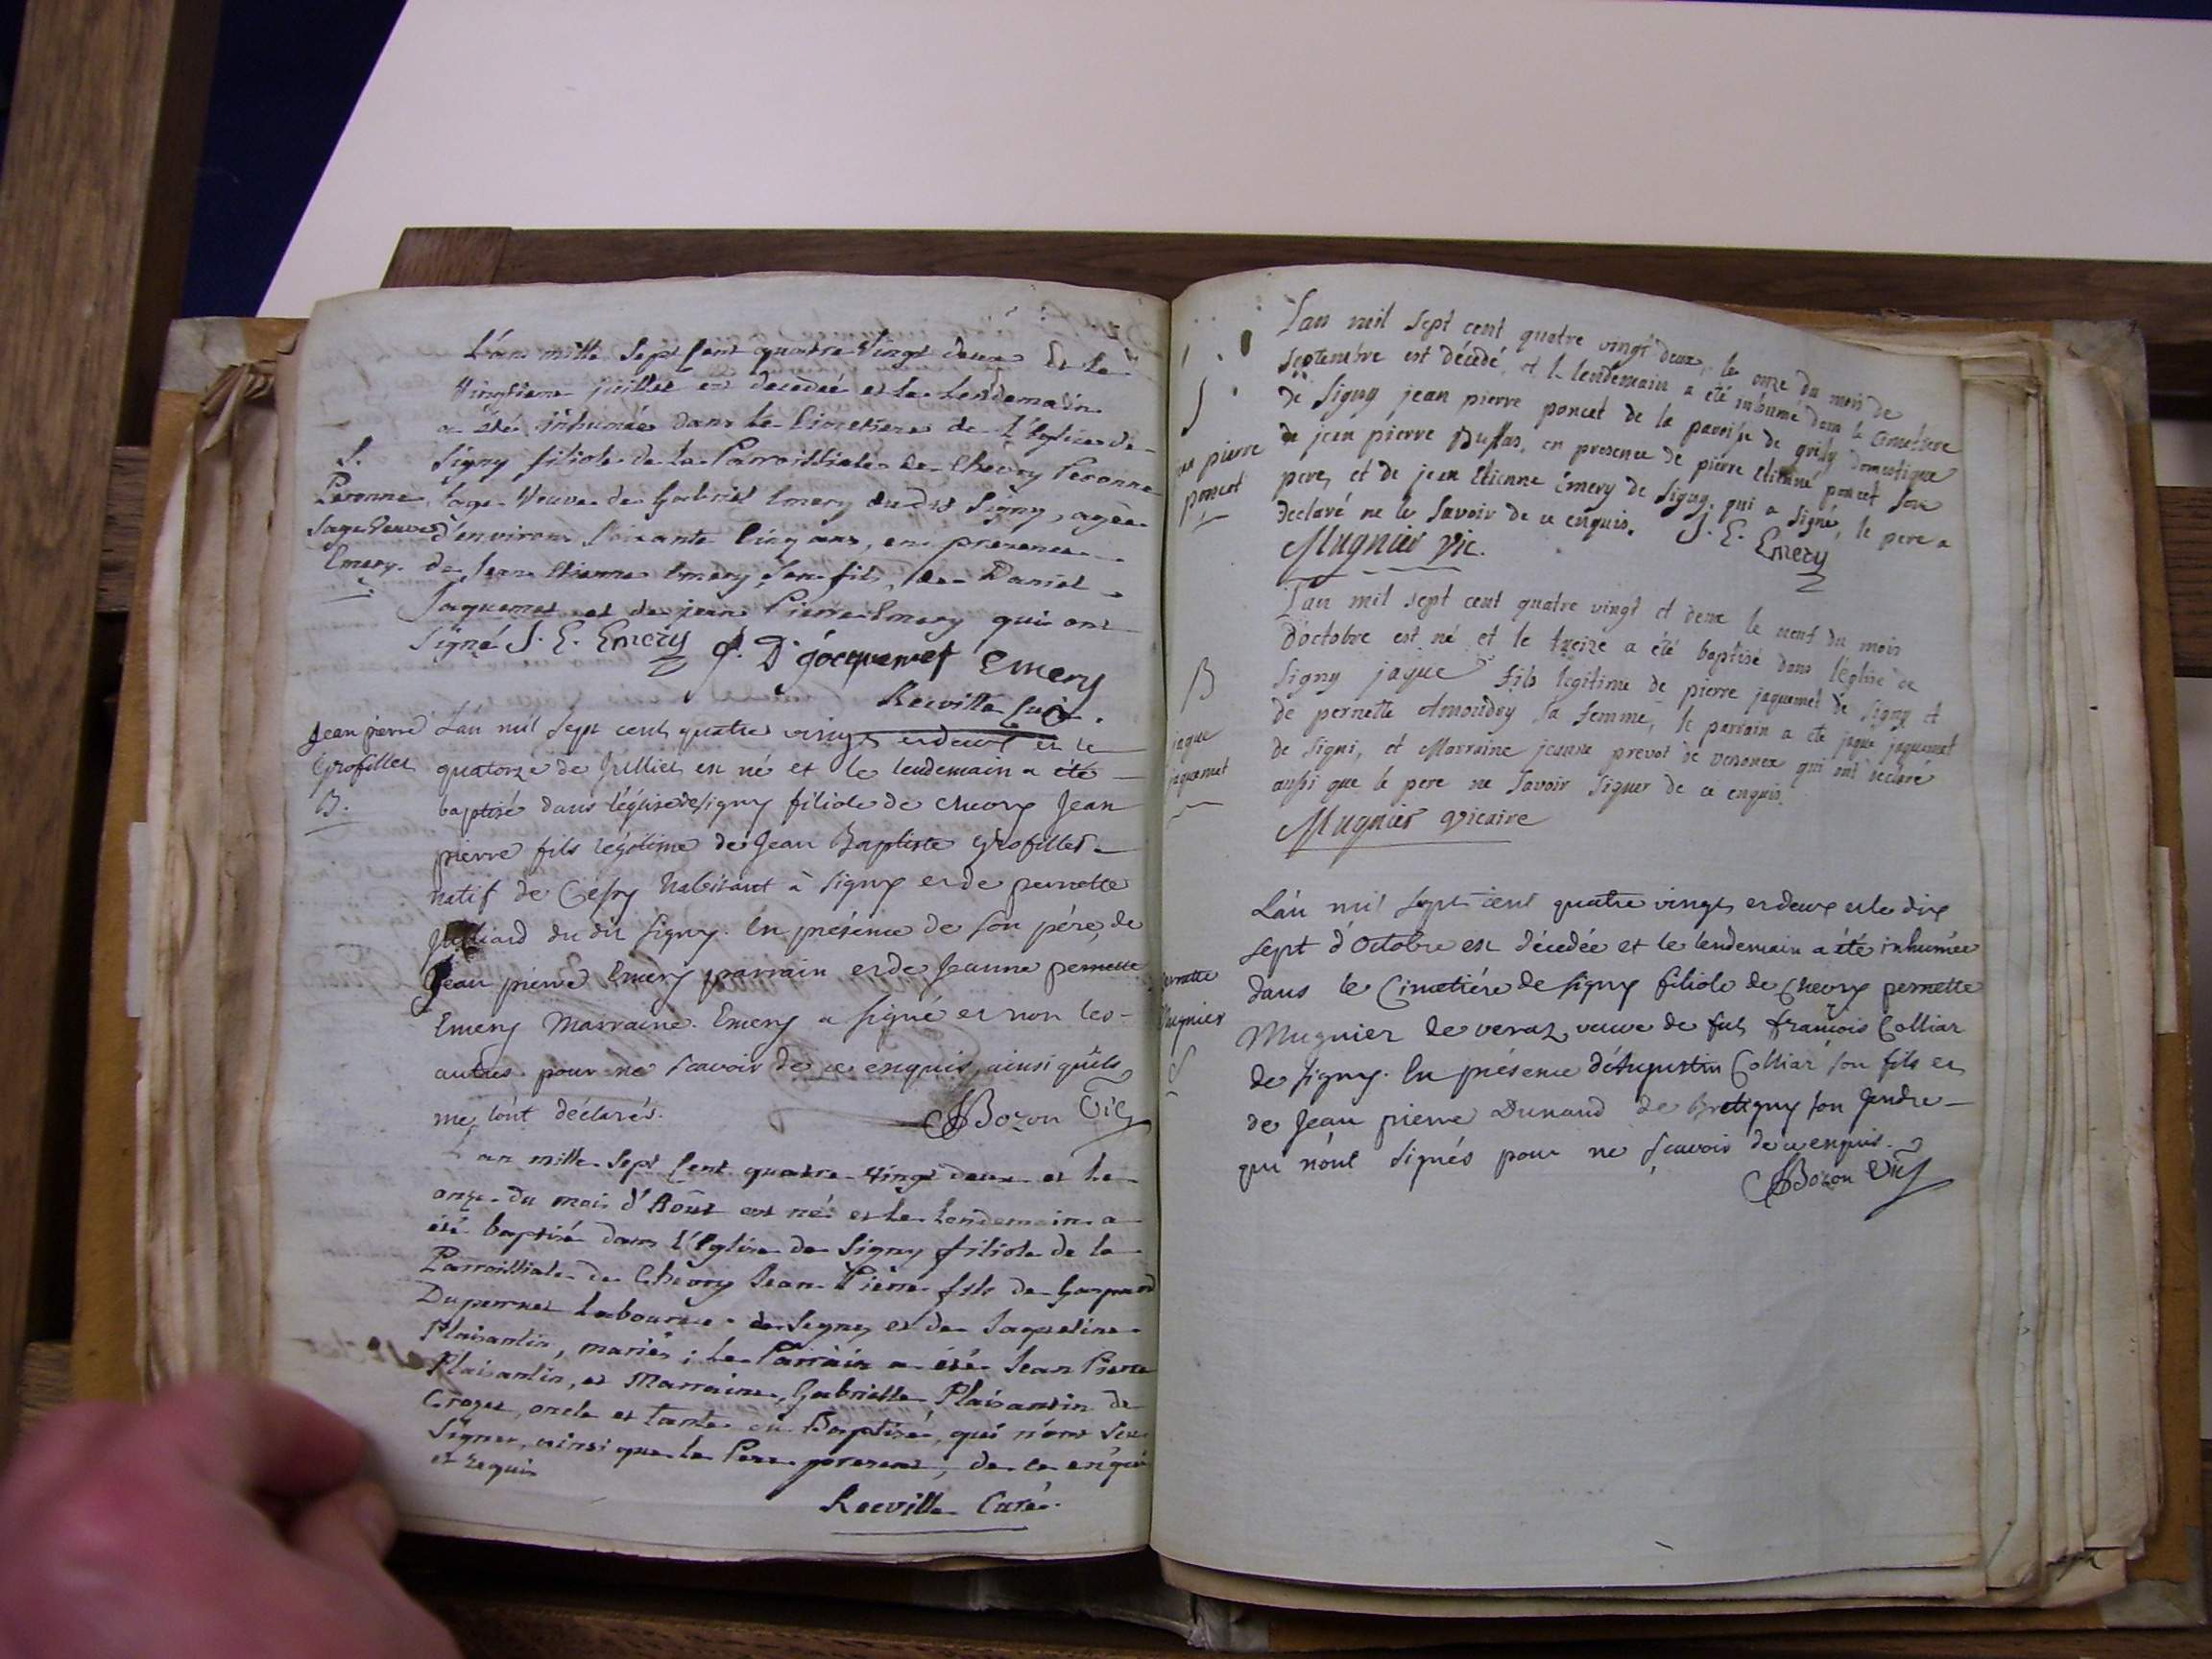 L'an mille Sept Cent quatre Vingt deux Et le
Vingtieme juillet est decedée et le Lendemain
a Eté inhumée dans le Cimetiere de L'Eglise de
Signy filiole de la Parroissiale de Chevry Peronne
Sage Veuve de Gabriel Emery du dit Signy, agée
d'environ Soixante Cinq ans, en presence
de Jean Etienne Emery Son fils, de Daniel
Jaquemet et de jean Pierre Emery qui ont
Signé J. E. Emery J. D. jacquemet Emery
Reeville Curé.
S.
Peronne
Sage Veuve
Emery.
Jean pierre
Grosfillet
B.
L'an mil sept cent quatre vingt et deux et le
quatorze de Juillet est né et le lendemain a été
baptisé dans l'église de signy filiole de chevry Jean
pierre fils légitime de Jean Baptiste Grosfillet
natif de Cessy habitant à signy et de pernette
Julliard du dit signy. En présence de son pére, de
Jean pierre Emery parrain et de Jeanne pernette
Emery Marraine. Emery a signé et non les
autres pour ne scavoir de ce enquis, ainsi qu'ils
me l'ont déclarés.
JBozon Vic
L'an mille Sept Cent quatre Vingt deux et le
onze du mois d'Août est né et le lendemain a
été baptisé dans l'Eglise de Signy filiole de la
Parroissiale de Chevry Jean Pierre fils de Gaspard
Dupernet Laboureur de Signy et de Jaqueline
Plaisantin, mariés; le Parrain a été Jean Pierre
Plaisantin, et Marraine, Gabrielle Plaisantin de
Crozet, oncle et tante du Baptisé, qui n'ont Seu
Signer, ainsi que le Pere present, de ce enquis
et requis
Reeville Curé.
L'an mil sept cent quatre vingt deux, le onze du mois de
septembre est décédé, et le lendemain a été inhumé dans le Cimetiere
de Signy jean pierre poncet de la paroisse de grilly domestique
de jean pierre Duflas, en presence de pierre Etienne poncet son
pere, et de jean Etienne Emery de Signy, qui a signé, le pere a
declaré ne le savoir de ce enquis. J. E. Emery
Mugnier Vic.
S
jean pierre
poncet
L'an mil sept cent quatre vingt et deux le neuf du mois
D'octobre est né et le treize a été baptisé dans l'église de
Signy jaque fils legitime de pierre jaquemet de Signy et
de pernette Amoudry sa femme, le parrain a été jaque jaquemet
de Signi, et Marraine jeanne prevot de vesonex qui ont declaré
aussi que le pere ne savoir signer de ce enquis.
Mugnier Vicaire
B
jaque
jaquemet
L'an mil sept cent quatre vingts et deux et le dix
sept d'Octobre est décedée et le lendemain a été inhumée
dans le Cimetiére de signy filiole de Chevry pernette
Mugnier de veraz veuve de fut françois Colliar
de signy. En présence d'Augustin Colliar son fils et
de Jean pierre Dunand de Bretigny son Gendre
qui n'ont signés pour ne scavoir de ce enquis.
JBozon Vic
pernette
Mugnier
S